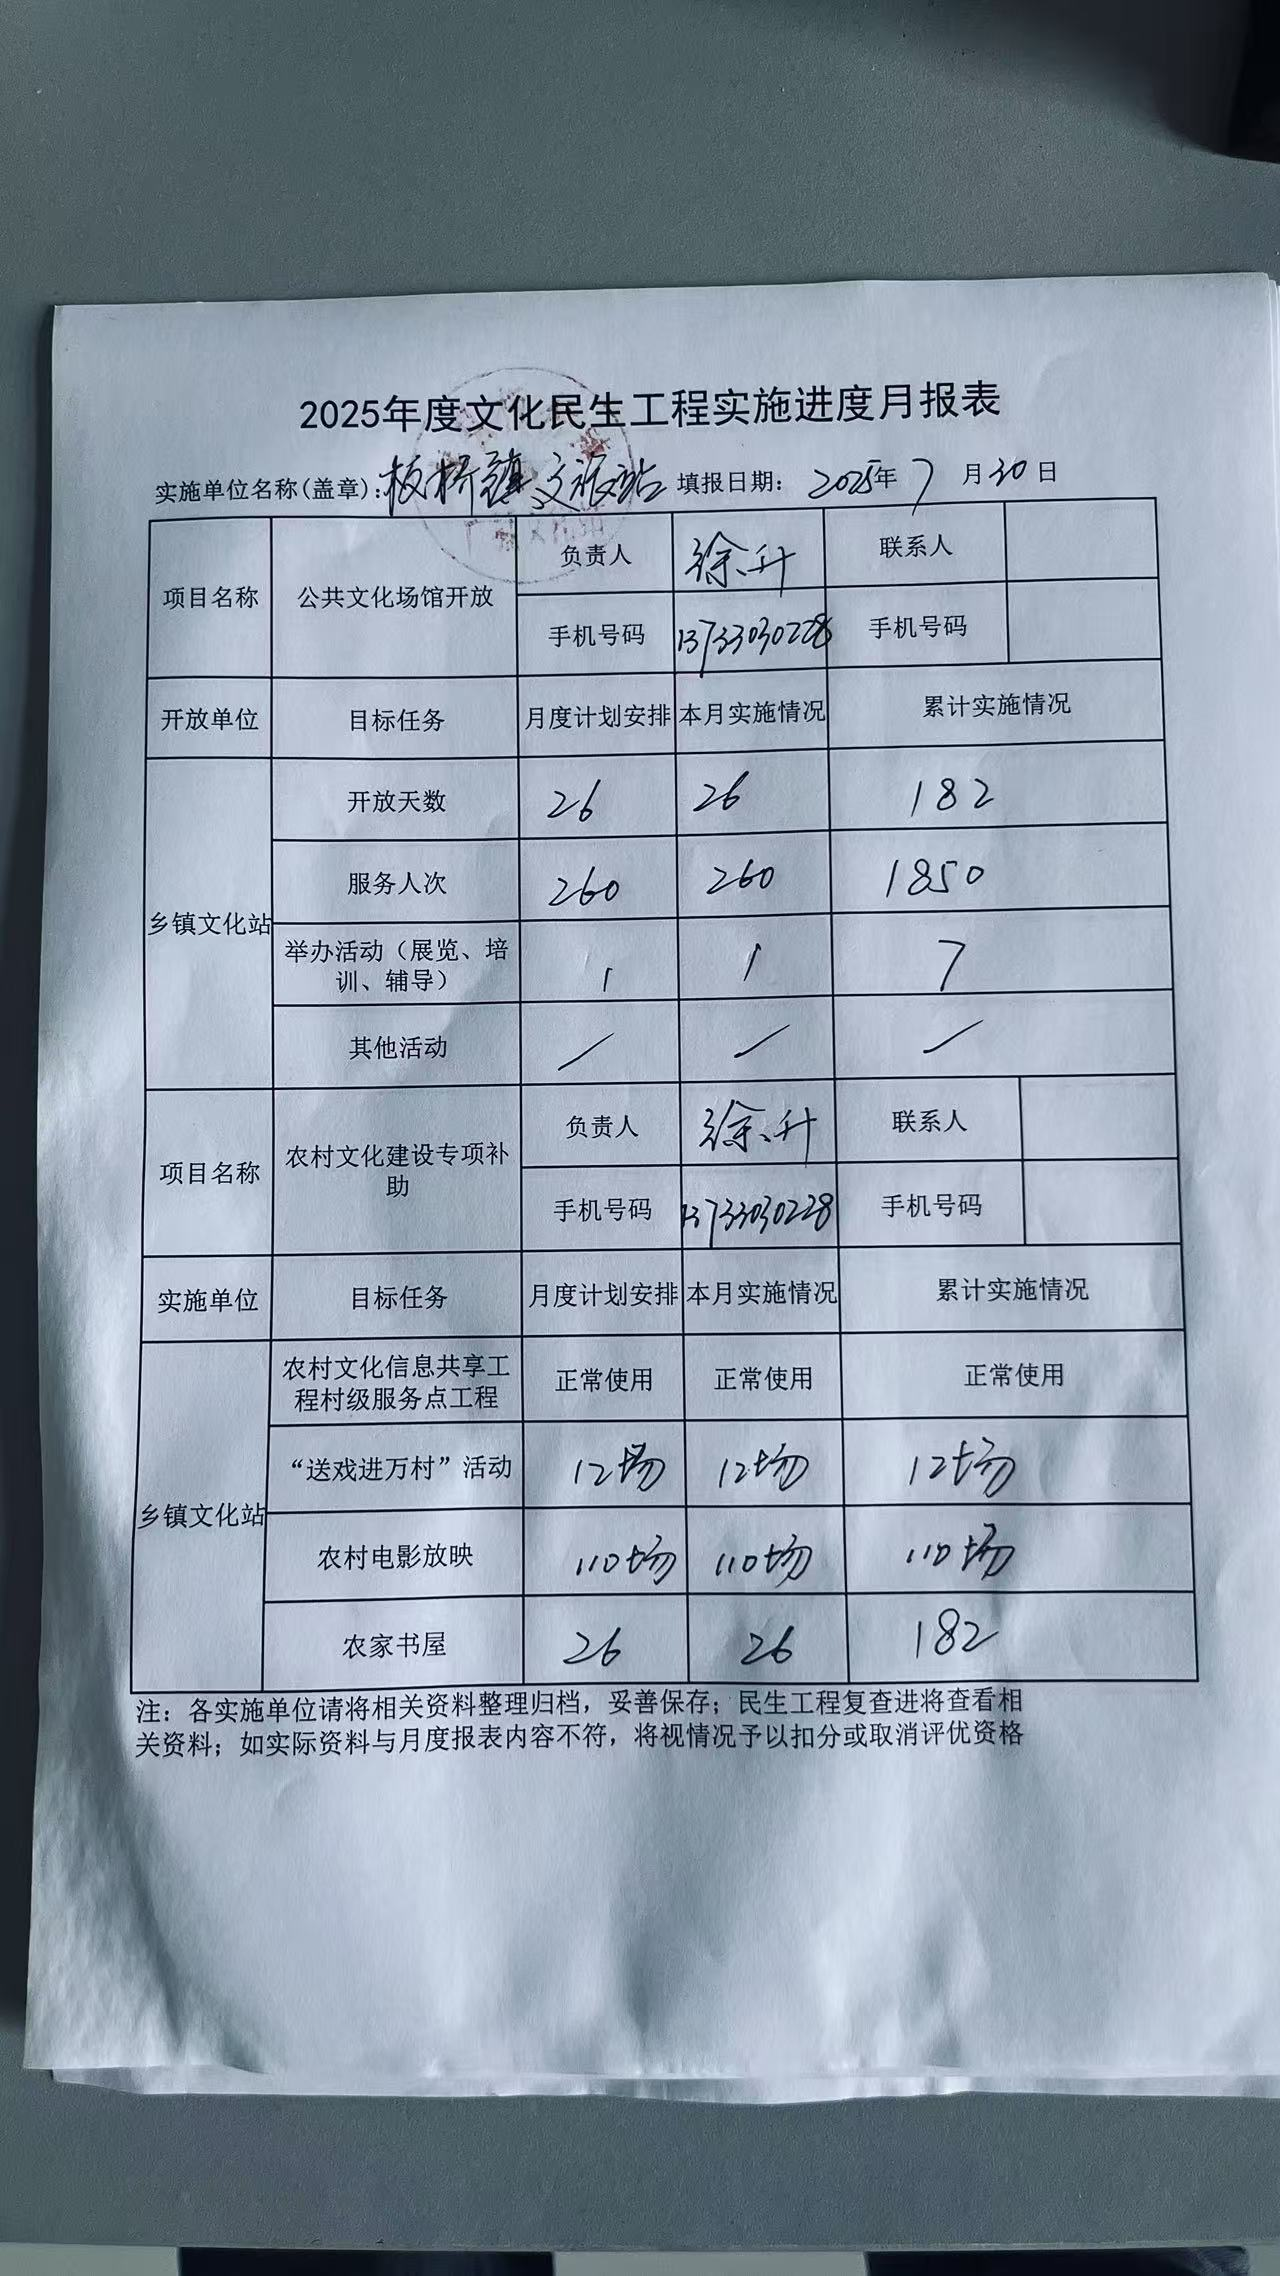 2025年度文化民生工程实施进度月报表
实施单位名称(盖章)：板桥镇文旅站 填报日期： 2025年 7 月 30 日
项目名称 公共文化场馆开放 负责人 徐升 联系人
手机号码 13733030228 手机号码
开放单位 目标任务 月度计划安排 本月实施情况 累计实施情况
乡镇文化站 开放天数 26 26 182
服务人次 260 260 1850
举办活动（展览、培
训、辅导） 1 1 7
其他活动 / / /
项目名称 农村文化建设专项补
助 负责人 徐升 联系人
手机号码 13733030228 手机号码
实施单位 目标任务 月度计划安排 本月实施情况 累计实施情况
乡镇文化站 农村文化信息共享工
程村级服务点工程 正常使用 正常使用 正常使用
“送戏进万村”活动 12场 12场 12场
农村电影放映 110场 110场 110场
农家书屋 26 26 182
注：各实施单位请将相关资料整理归档，妥善保存；民生工程复查进将查看相
关资料；如实际资料与月度报表内容不符，将视情况予以扣分或取消评优资格